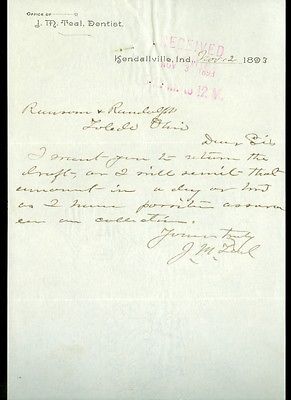 OFFICE OF
J. M. Teal, Dentist.
RECEIVED
NOV 3 1893
Kendallville, Ind., Nov 2 1893
12 M.
Ransom & Randolph
Toledo Ohio
Dear Sir
I want you to return the
draft, as I will remit that
amount in a day or two
as I have positive assuran
ces on collections.
Yours truly
J M Teal